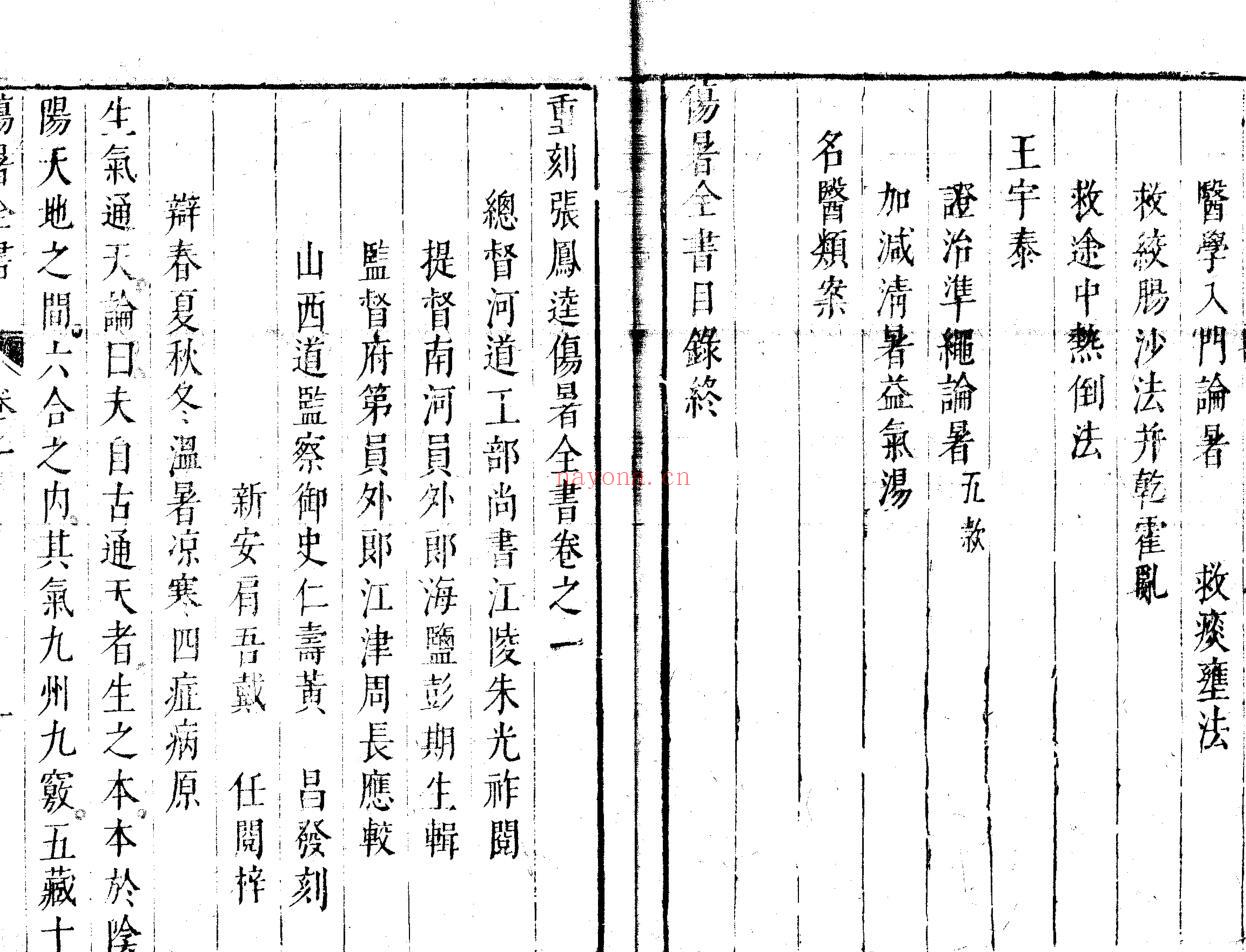 醫學入門論暑 救痰壅法
救絞腸沙法并乾霍亂
救途中熱倒法
王宇泰
證治準繩論暑五款
加減清暑益氣湯
名醫類案
傷暑全書目錄終
重刻張鳳逵傷暑全書卷之一
總督河道工部尚書江陵朱光祚閱
提督南河員外郎海鹽彭期生輯
監督府第員外郎江津周長應較
山西道監察御史仁壽黃 昌發刻
新安肩吾戴 任閱梓
辯春夏秋冬溫暑凉寒四症病原
生氣通天論曰夫自古通天者生之本本於陰
陽天地之間六合之內其氣九州九竅五藏十
傷暑全書 卷之一 一
nayona.cn